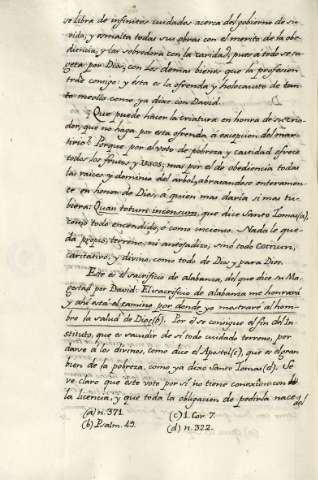 se libra de infinitos cuidados acerca del gobierno de su
vida, y esmalta todas sus obras con el merito de la obe-
diencia, y las sobredora con la caridad, pues a todo se su-
geta por Dios, con los demas bienes que la profesion
trae consigo: y ésta es la ofrenda y holocausto de tan-
ta meollo como ya dixo con David.
¿Que puede hacer la criatura en honra de su cria-
dor, que no haga por esta ofrenda, á excepcion del mar-
tirio? Porque por el voto de pobreza y castidad ofrece
todos los frutos y usos; mas por el de obediencia todas
las raices y dominio del arbol, abrasandose enteramen-
te en honor de Dios, á quien mas daria si mas tu-
biera: Quasi totum incensum, que dice Santo Tomas (a),
como todo encendido, ó como incienso. Nada le que-
da propio, terreno, ni antojadizo, sinó todo comun,
caritativo, y divino, como todo de Dios y para Dios.
Este es el sacrificio de alabanza, del que dice su Ma-
gestad por David: El sacrificio de alabanza me honrará
y ahí está el camino por donde yo mostraré al hom-
bre la salud de Dios (b). Por él se consigue el fin del In-
stituto, que es sacudir de sí todo cuidado terreno, por
darse a los divinos, como dice el Apostol (c), que es el gran
bien de la pobreza, como ya dixo Santo Tomas (d). Se
ve claro que este voto por sí no tiene conexion con
la licencia, y que toda la obligacion de pedirla nace del
(a) n. 371. (c) 1. Cor. 7.
(b) Psalm. 49. (d) n. 322.